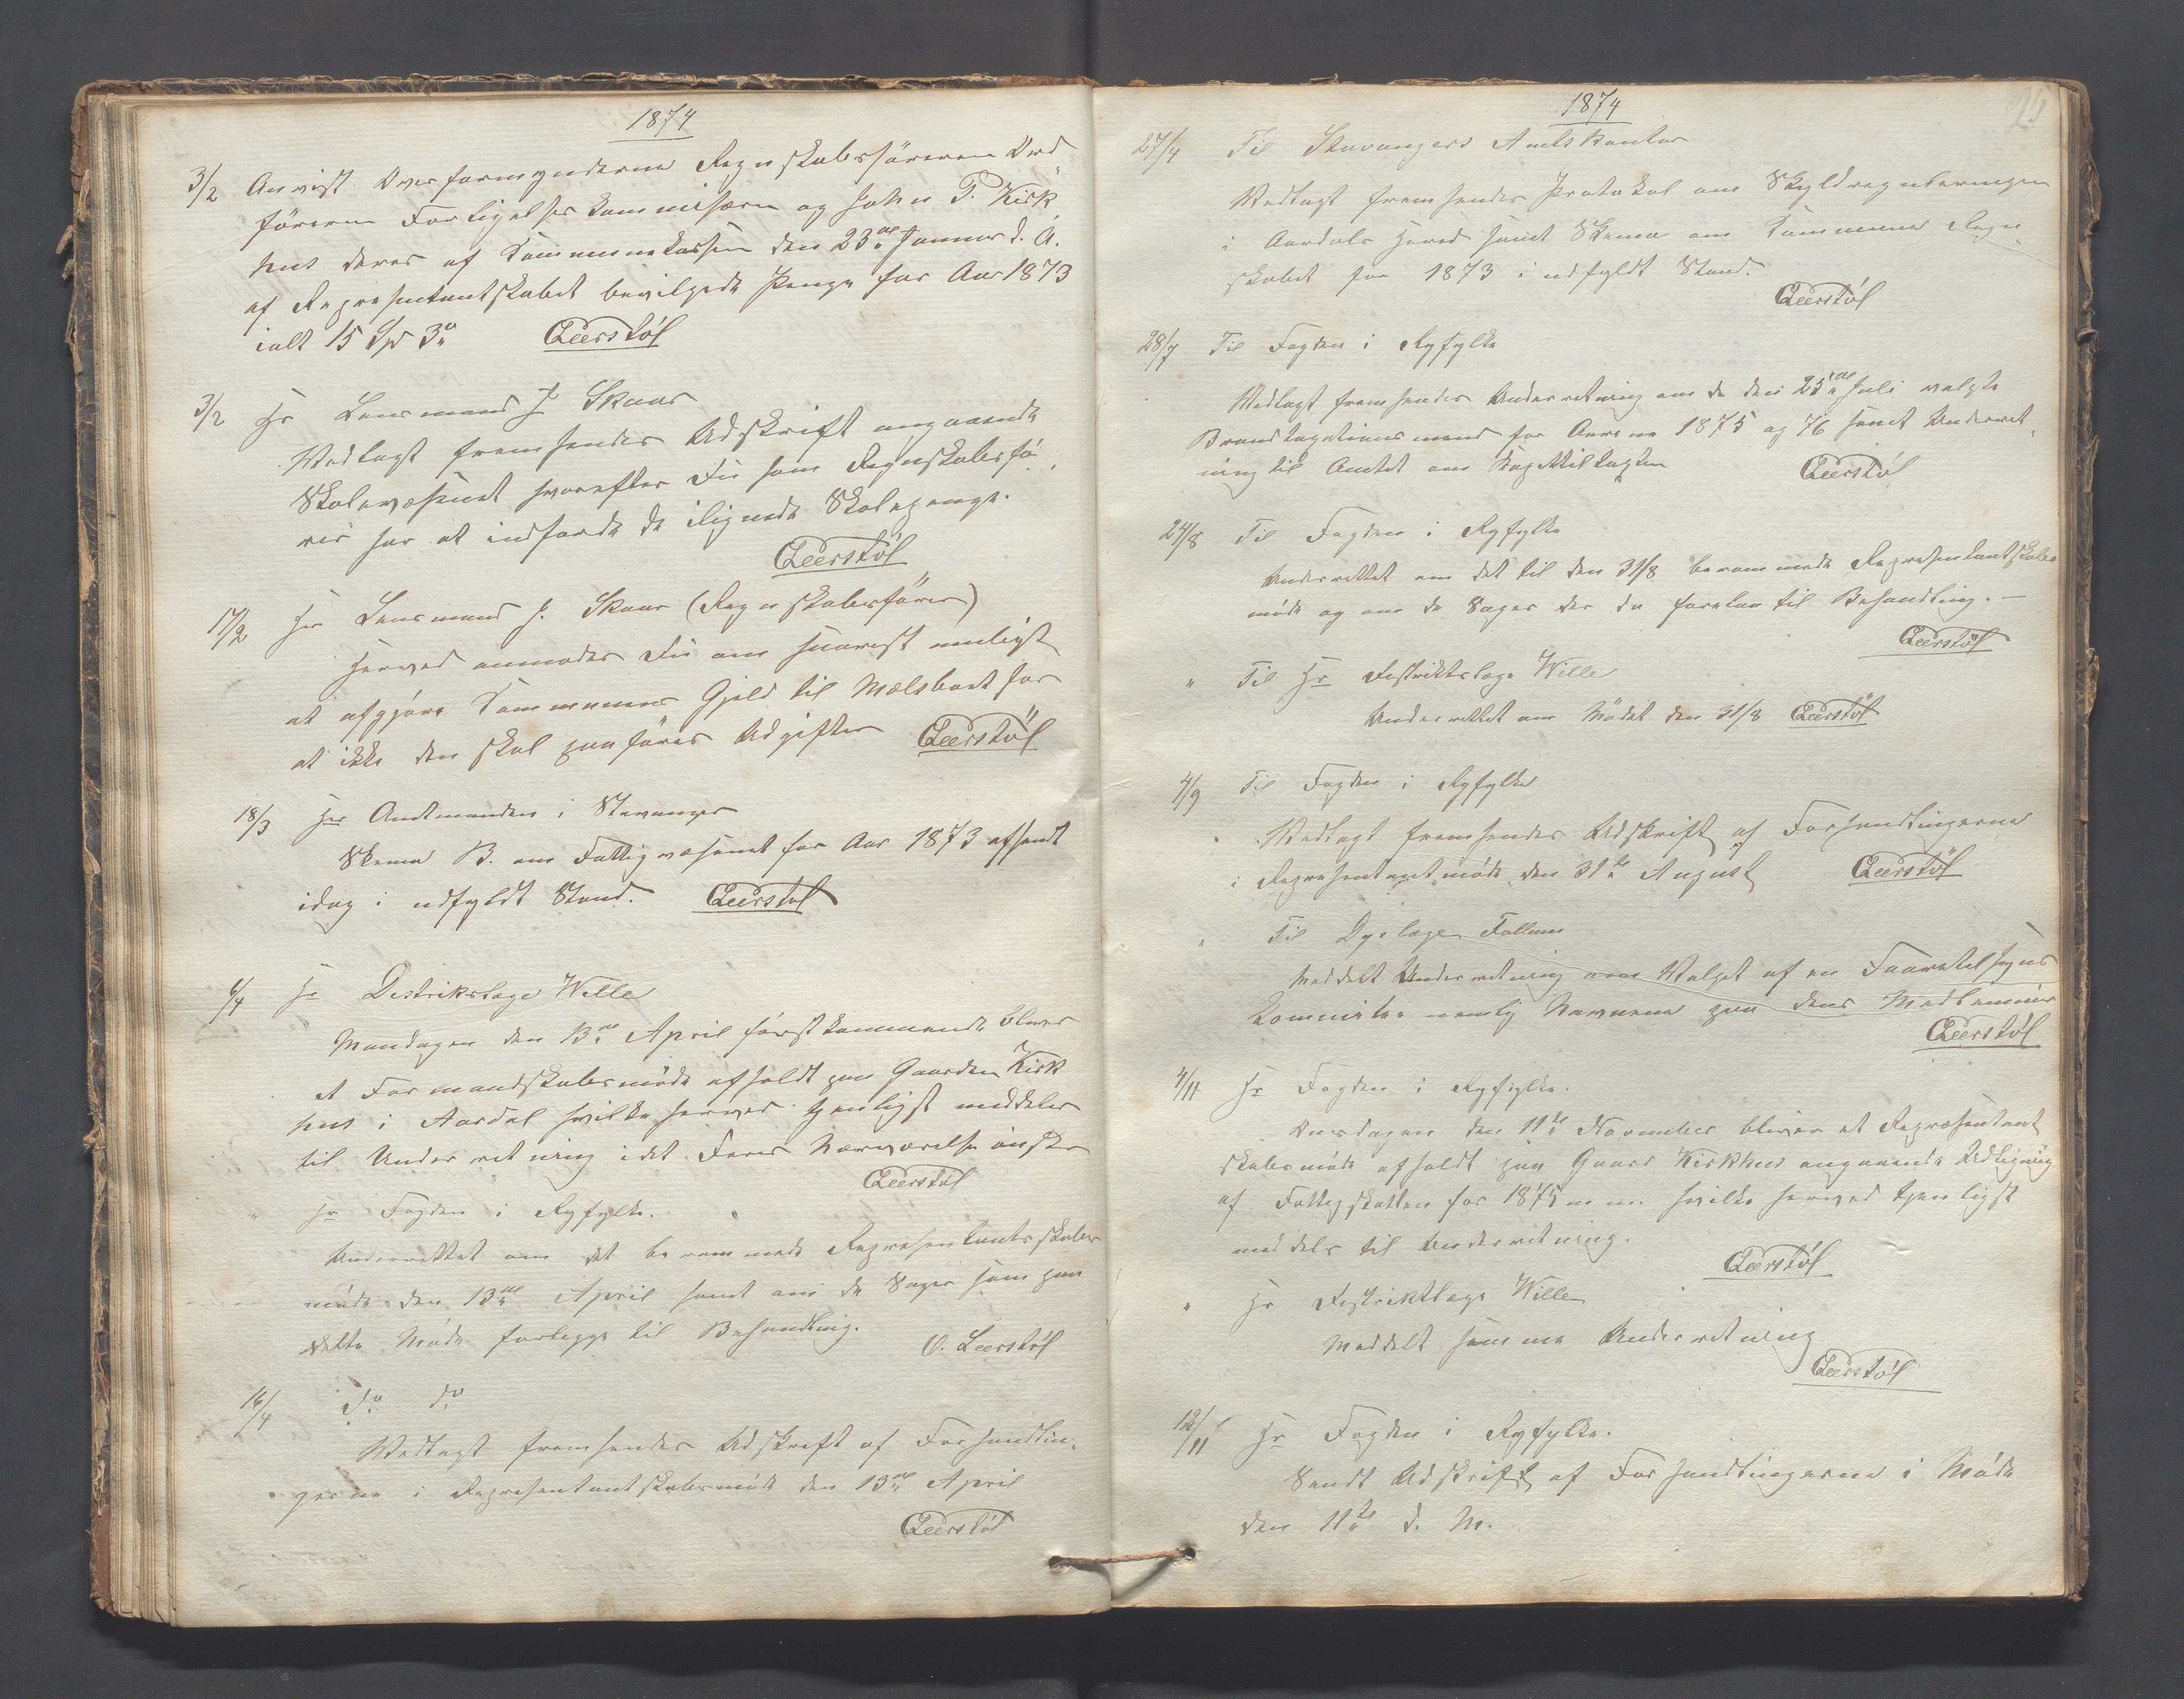 1874
3/2 Anvist Overformynderne Regnskabsföreren Ord
föreren Forligelseskommisæren og John P. Kirk
hus deres af Kommunekassen den 23de Januar d. A.
af Repræsentantskabet bevilgede Penge for Aar 1873
ialt 15 Spd 3 Leerstöl
3/2 Hr Lensmand J. Skaar
Vedlagt fremsendes Udskrift angaaende
Skolevæsenet hvorefter De som Regnskabsfö
rer har at indfordre de ilignede Skolepenge.
Leerstöl
17/2 Hr Lensmand J. Skaar (Regnskabsförer)
Herved anmodes De om snarest muligt
at afgjöre Kommunens Gjeld til for
at ikke den skal paaföres Udgifter Leerstöl
18/3 Hr Amtmanden i Stavanger
Skema B. om Fattigvæsenet for Aar 1873 afsendt
idag i udfyldt Stand. Leerstöl
6/4 Hr Distrikslæge Wille
Mandagen den 13de April förstkommende bliver
et Formandskabsmöde afholdt paa Gaarden Kirk
hus i Aardal hvilke herved tjenligst meddeles
til Underretning idet Deres Nærværelse önskes
Leerstöl
" Hr Fogden i Ryfylke.
Underrettet om det berammede Repræsentantsskabs
möde den 13de April samt om de Sager som paa
dette Möde forlegges til Behandling. O. Leerstöl
16/4 do do
Vedlagt fremsendes Udskrift af Forhandlin
gerne i Repræsentantskabsmöde den 13de April
Leerstöl
1874
27/4 Til Stavangers Amtskontor
Vedlagt fremsendes Protokol om Skyldreguleringen
i Aardals Hered samt Skema om Kommune Regn
skabet for 1873 i udfyldt Stand.
Leerstöl
28/7 Til Fogden i Ryfylke
Vedlagt fremsendes Underretning om de den 25de Juli valgte
Brandtaxtionsmænd for Aarene 1875 og 76 samt Underret
ning til Amtet om Leerstöl
24/8 Til Fogden i Ryfylke
Underrettet om det til den 31/8 berammede Repræsentantskabs
möde og om de Sager der da foretages til Behandling. —
Leerstöl
" Til Hr Distriktslæge Wille
Underrettet om Mödet den 31/8 Leerstöl
4/9 Til Fogden i Ryfylke
Vedlagt fremsendes Udskrift af Forhandlingerne
i Repræsentantmöde den 31te August Leerstöl
" Til Dyrlæge
Meddelt Underretning om Valget af en Faaretilsyns
Kommite nemlig Navnene paa dens Medlemmer
Leerstöl
4/11 Hr Fogden i Ryfylke.
Onsdagen den 11te November bliver et Repræsentant
skabsmöde afholdt paa Gaard Kirkhus angaaende Udligning
af Fattigskatten for 1875 m m. hvilke herved tjenligst
meddeles til Underretning.
Leerstöl
" Hr Distriktlæge Wille
Meddelt samme Underretning
Leerstöl
12/11 Hr Fogden i Ryfylke.
Sendt Udskrift af Forhandlingerne i Möde
den 11te d. M.